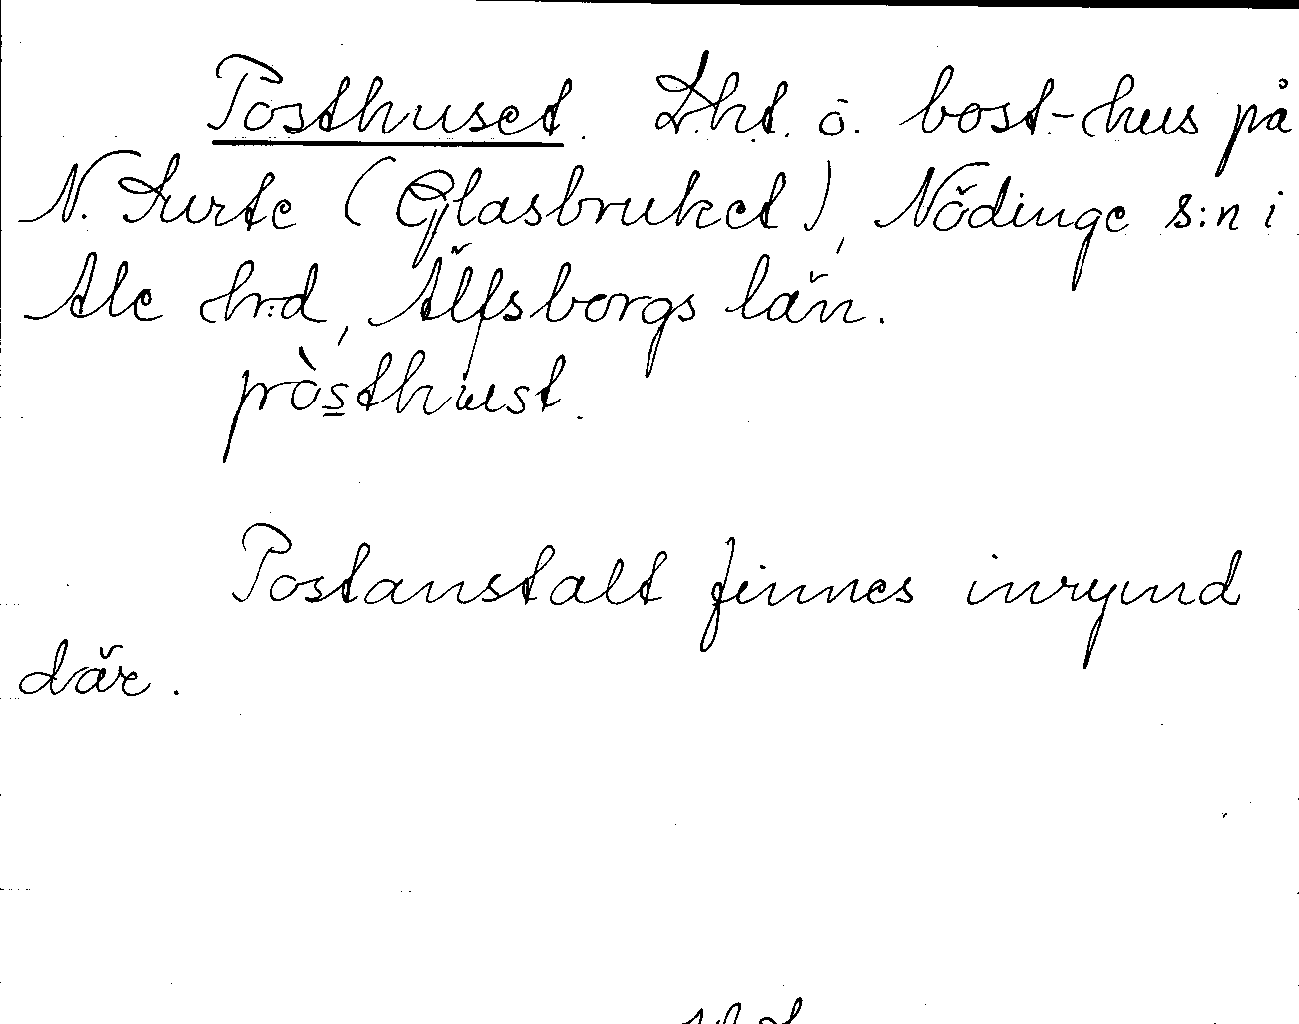 Posthuset. Lht. o. bost-hus på
N. Surte (Glasbruket), Nödinge s:n i
Ale hrd, Älfsborgs län.
pròsthust.
Postanstalt finnes inrymd
där.